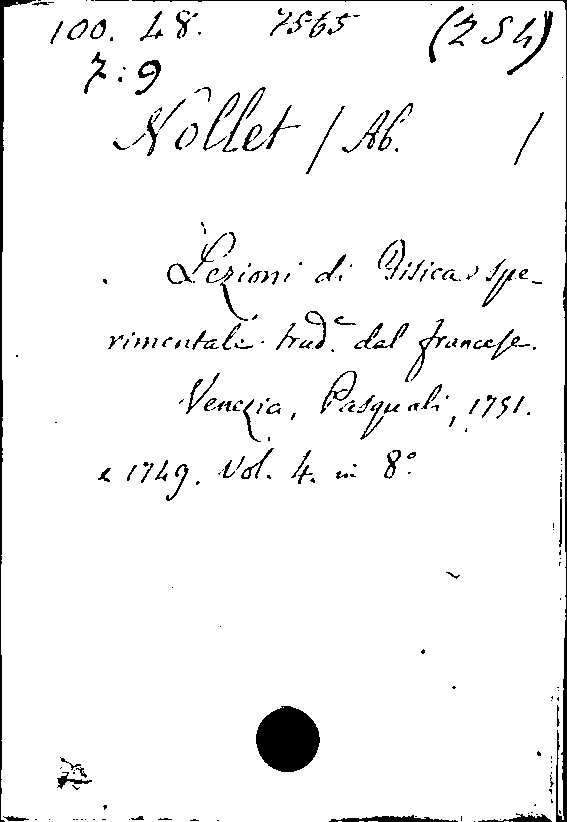 100. 48. 7565 (254)
7:9
Nollet / Ab. /
Lezioni di Fisica spe-
rimentale trad.e dal francese.
Venezia, Pasquali, 1751.
e 1749. Vol. 4. in 8.o